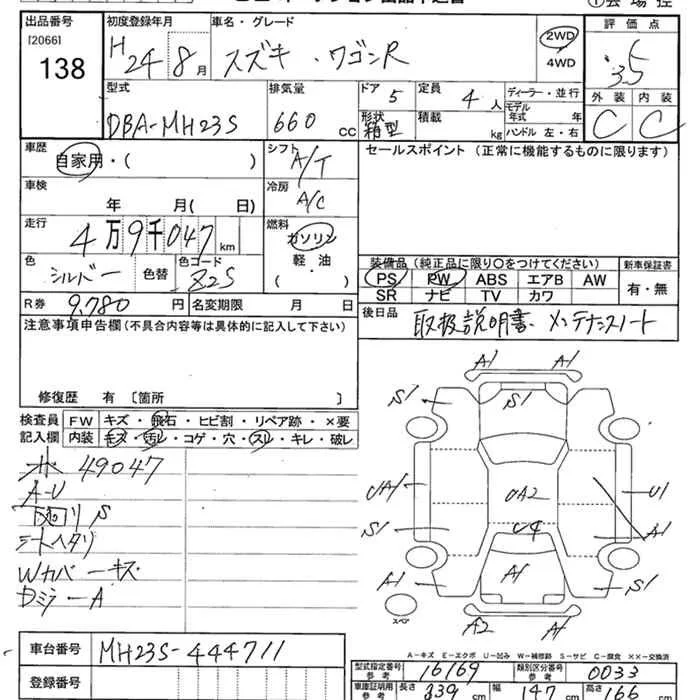 出品番号 初度登録年月 車名・グレード 評価点
[2066] 138 H 24年 8月 スズキ・ワゴンR 2WD 4WD 3.5
外装 内装
C C
型式 排気量 ドア 定員 ディーラー・並行
DBA-MH23S 660 CC 5 4人 モデル年式 年
形状 箱型 積載 kg ハンドル 左・右
車歴 シフト セールスポイント (正常に機能するものに限ります)
自家用・( ) A/T
車検 冷房
年 月( 日) A/C
走行 燃料
4万9千047km ガソリン
軽・油
色 シルバー 色替 色コード Z2S
装備品(純正品に限り〇をつけてください) 新車保証書
PS PW ABS エアB AW 有・無
SR ナビ TV カワ
R券 9,780円 名変期限 月 日
後日品 取扱説明書、メンテナンスノート
注意事項申告欄(不具合内容等は具体的に記入して下さい)
修復歴 有 [箇所 ]
検査員 FW キズ・飛石・ヒビ割・リペア跡・×要
記入欄 内装 キズ・汚レ・コゲ・穴・スレ・キレ・破レ
49047
A-U
シートヘタリ
Wカバーキズ
Dミラ-A
A1 A1
S1 S1 S1
UA1 UA2 U1
S1 U4 A1
A1 A1 S1
スペア A2 A1
A-キズ E-エクボ U-凹み W-補修跡 S-サビ C-腐食 ××-交換済
車台番号 MH23S-444711
登録番号
型式指定番号 参考 16169 類別区分番号 参考 0033
車庫証明用 参考 長さ 339cm 幅 147cm 高さ 166cm